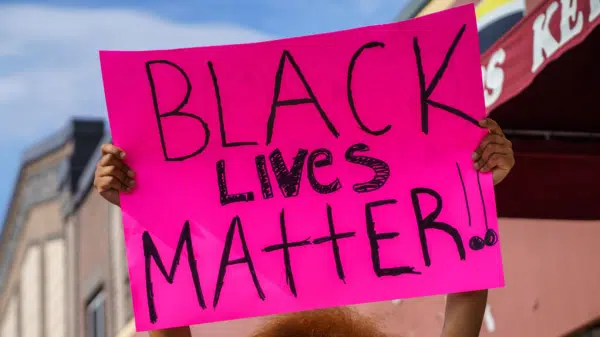 BLACK
LIVES
MATTER!!